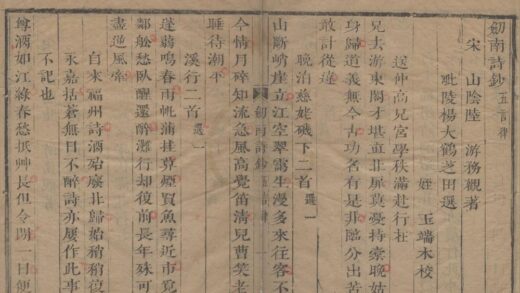 劒南詩鈔 五言律
宋 山陰陸 游務觀著
毗陵楊大鶴芝田選
姪 玉端木校
送仲高兄宮學秩滿赴行在
兄去游東閣才堪直北扉莫憂持橐晚姑
身歸道義無今古功名有是非臨分出苦
敢計從違
晚泊慈姥磯下二首 選一
山斷峭崖立江空翠靄生漫多來往客不
劒南詩鈔
今情月碎知流急風高覺笛清兒曹笑老
睡待潮平
溪行二首 選一
篷蒻鳴春雨帆蒲挂莫煙買魚尋近市覓
鄰舩愁臥醒還醉灘行却復前長年殊可
盡逆風牽
自來福州詩酒殆廢北歸始稍稍復
永嘉括蒼無日不醉詩亦屢作此事
不記也
尊酒如江綠春愁抵艸長但令閑一日便